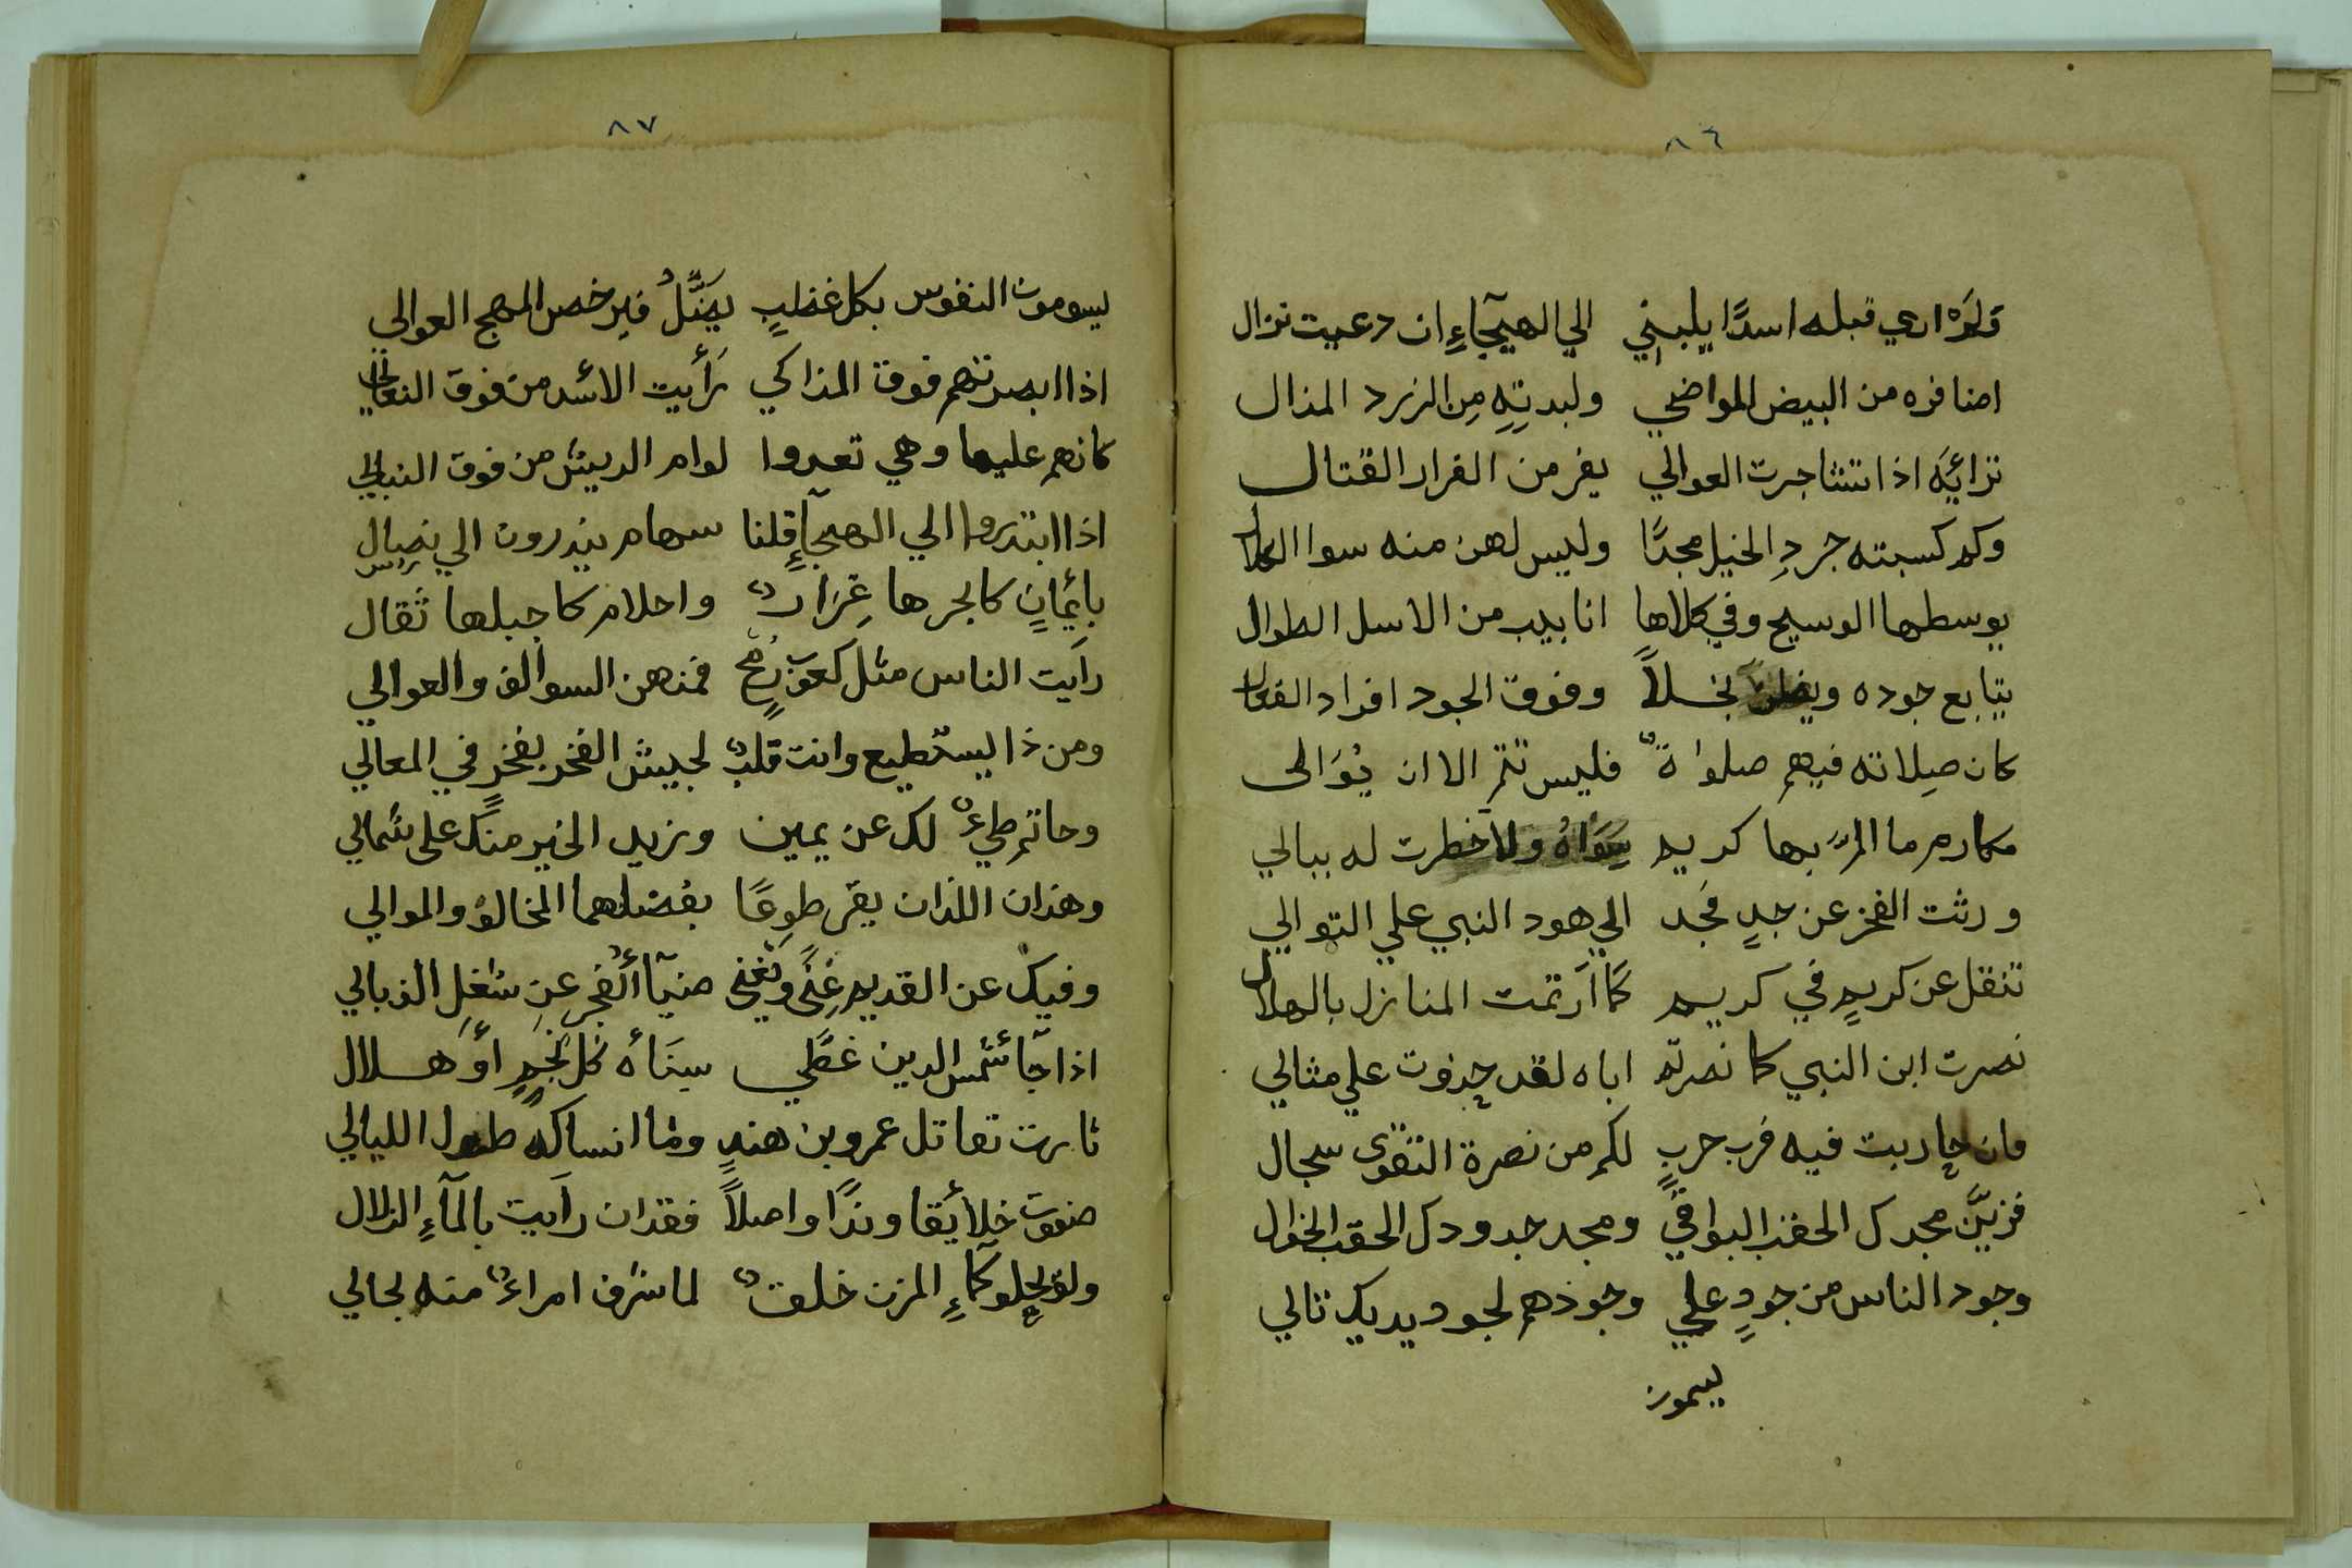 ٨٦
ولم ارى قبله اسدًا يلبيني الي الهيجآءِ ان دعيت نزال
اضافره من البيض المواضي ولبدتِهِ مِن الزرد المذال
ترائيه اذا تشاجرت العوالي يفر من الفرار القتال
وكم كسبته جردِ الخيل مجدًا وليس لهن منه سوا الكلال
يوسطها الوسيج وفي كلاها انابيب من الاسل الطوال
يتابع جوده بخلاً وفوق الجود افراد الفعال
كان صِلاته فيهم صلواةٌ فليس تتم الا ان يُوَالى
مكارم ما المّ بها كريم سِوَاهُ ولا خطرت له ببالي
ورثت الفخر عن جدٍ فجَد الي هود النبي علي التوالي
تنقل عن كريمٍ في كريم كما ارتمت المنازل بالهلال
نصرت ابن النبي كما نصرتم اباه لقد حذوت علي مثالي
فان حاربت فيه فرب حربٍ لكم من نصرة التقوى سجال
فزيَّن مجدك الحقب البواقي ومجد جدودك الحقب الخوال
وجود الناس من جودٍ علي وجودهم لجود يديك تالي
ليسمون
٨٧
ليسومون النفوس بكل عضبٍ يضَّلُ فيرخص المهج العوالي
اذا ابصرتهم فوق المذاكي رَأَيت الاسُد من فوق
كانهم عليها وهي تعدوا لوام الريش من فوق النبالي
اذا ابتدروا الي الهيجآءِ قلنا سهام يبتدرون الي نصال
بايمانٍ كابحرها غِزَارٌ واحلام كاجبلها ثقال
رايَت الناس مثل كعوب رُمحٍ فمنهن السوالف والعوالي
ومن ذا يستطيع وانت قلبٌ لجيش الفخر بفخرٍ في المعالي
وحاتم طيءٌ لك عن يمين وزيد الخير منك على شمالي
وهذان اللذان يقرّ طوعًا بفضلهما المخالف والموالي
وفيك عن القديم غِنًى وتُغني ضيآ الفجرِ عن شغلِ الذبالي
اذا جآ شمس الدين غطّي سِنَاه كل نجمٍ أو هلال
ثارت تقاتل عمرو بن هندٍ وما انساكه طول الليالي
صفوت خلائقا وندًا واصلاً فقد ان رايت بالمآءِ الزلال
ولو يحلو كمآءِ المزن خلقٌ لما شرف امراءٌ منه بحالي